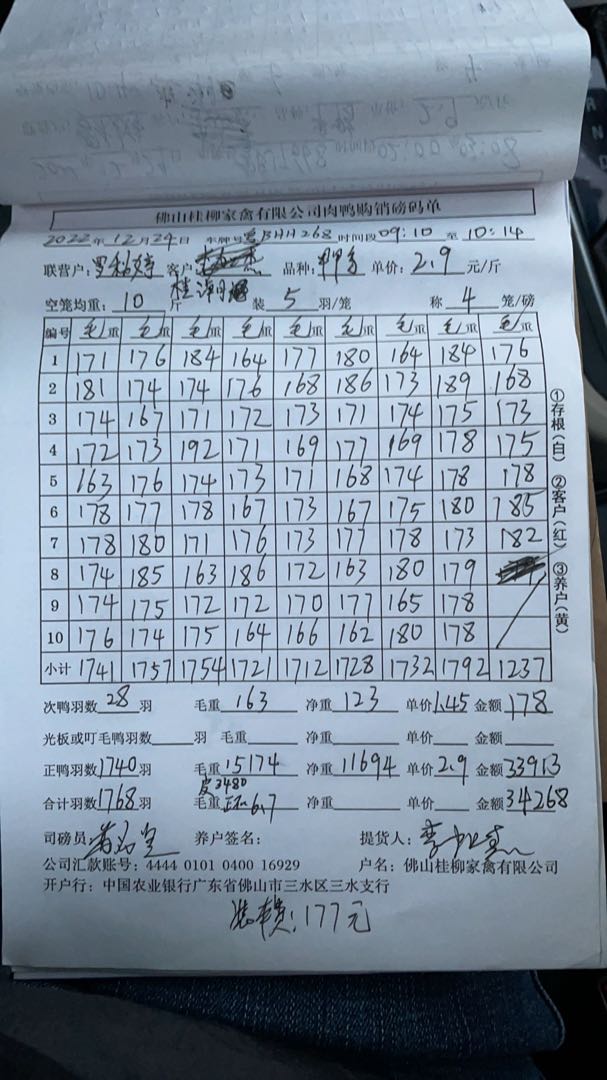 佛山桂柳家禽有限公司肉鸭购销磅码单
2022年12月24日 车牌号 BHH268 时间段09:10 至 10:14
联营户: 客户: 品种: 单价: 2.9 元/斤
空笼均重: 10 斤 装 5 羽/笼 称 4 笼/磅
编号 毛/重 毛/重 毛/重 毛/重 毛/重 毛/重 毛/重 毛/重 毛/重
1 171 176 184 164 177 180 164 184 176
2 181 174 174 176 168 186 173 189 168
3 174 167 171 172 173 171 174 175 173
4 172 173 192 171 169 177 169 178 175
5 163 176 174 173 171 168 174 178 178
6 178 177 178 167 173 167 175 180 185
7 178 180 171 176 173 177 178 173 182
8 174 185 163 186 172 163 180 179
9 174 175 172 172 170 177 165 178
10 176 174 175 164 166 162 180 178
小计 1741 1757 1754 1721 1712 1728 1732 1792 1237
①存根(白) ②客户(红) ③养户(黄)
次鸭羽数 28 羽 毛重 163 净重 123 单价 1.45 金额 178
光板或叮毛鸭羽数 羽 毛重 净重 单价 金额
正鸭羽数1740羽 毛重 15174 净重 11694 单价 2.9 金额 33913
皮3480
合计羽数1768羽 毛重 6.7 净重 单价 金额 34268
司磅员: 养户签名: 提货人:
公司汇款账号: 4444 0101 0400 16929 户名: 佛山桂柳家禽有限公司
开户行: 中国农业银行广东省佛山市三水区三水支行
装车费: 177元